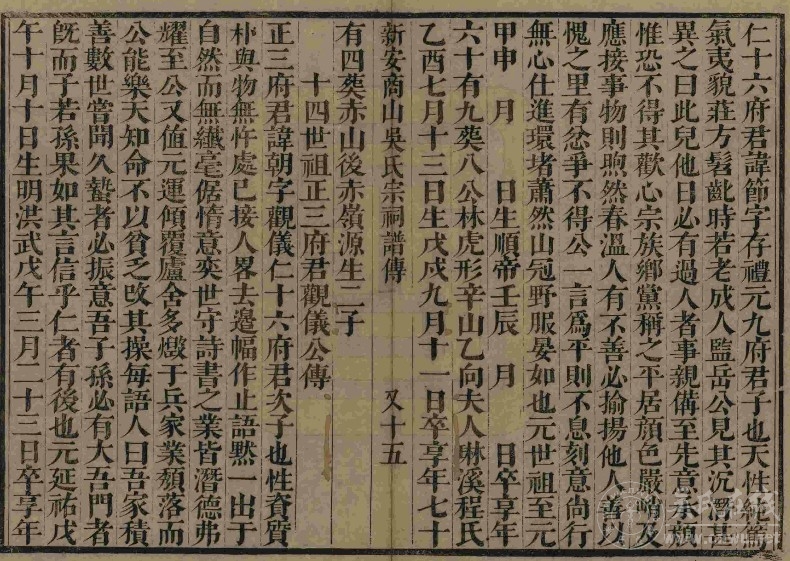 仁十六府君諱節字存禮元九府君子也天性純篤
氣夷貌莊方髫齔時若老成人監岳公見其沉潛甚
異之曰此兒他日必有過人者事親備至先意承顏
惟恐不得其歡心宗族鄉黨稱之平居顏色嚴峭及
應接事物則煦然春溫人有不善必揄揚他人善以
愧之里有忿爭不得公一言爲平則不息刻意尚行
無心仕進環堵蕭然山冠野服晏如也元世祖至元
甲申 月 日生順帝壬辰 月 日卒享年
六十有九葬八公林虎形辛山乙向夫人琳溪程氏
乙酉七月十三日生戊戌九月十一日卒享年七十
新安商山吳氏宗祠譜傳 又十五
有四葬赤山後赤嶺源生二子
十四世祖正三府君觀儀公傳
正三府君諱朝字觀儀仁十六府君次子也性資質
朴與物無忤處己接人畧去邊幅作止語默一出于
自然而無纖毫倨惰意奕世守詩書之業皆潛德弗
耀至公又值元運傾覆廬舍多燬于兵家業頹落而
公能樂天知命不以貧乏攺其操每語人曰吾家積
善數世嘗聞久蟄者必振意吾子孫必有大吾門者
旣而子若孫果如其言信乎仁者有後也元延祐戊
午十月十日生明洪武戊午三月二十三日卒享年